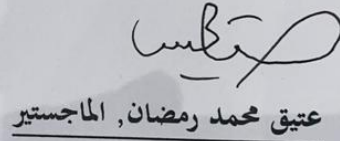 عتيق محمد رمضان, الماجستير